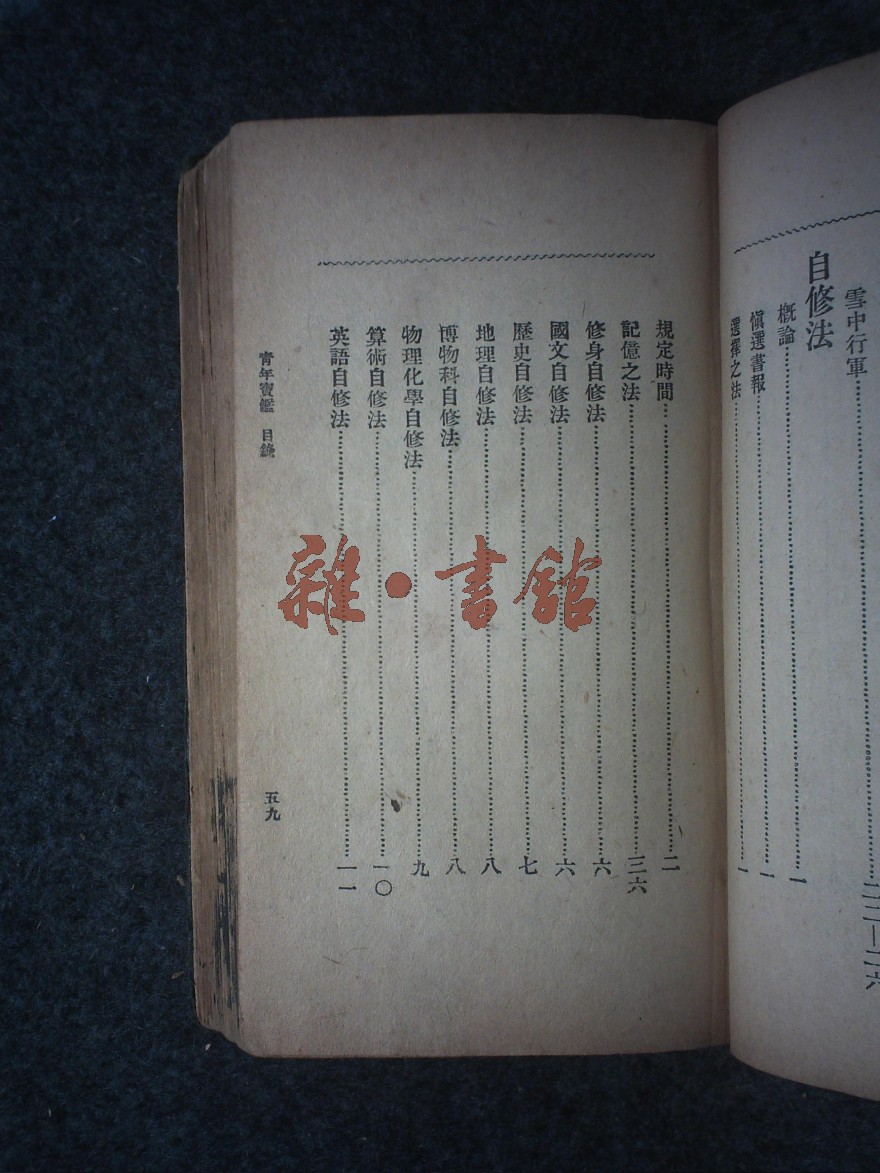 雪中行軍……二二—二六
自修法
概論……一
慎選書報……一
選擇之法……一
規定時間……二
記億之法……三六
修身自修法……六
國文自修法……六
歷史自修法……七
地理自修法……八
博物科自修法……八
物理化學自修法……九
算術自修法……一〇
英語自修法……一一
青年寶鑑 目錄
五九
雜·書館